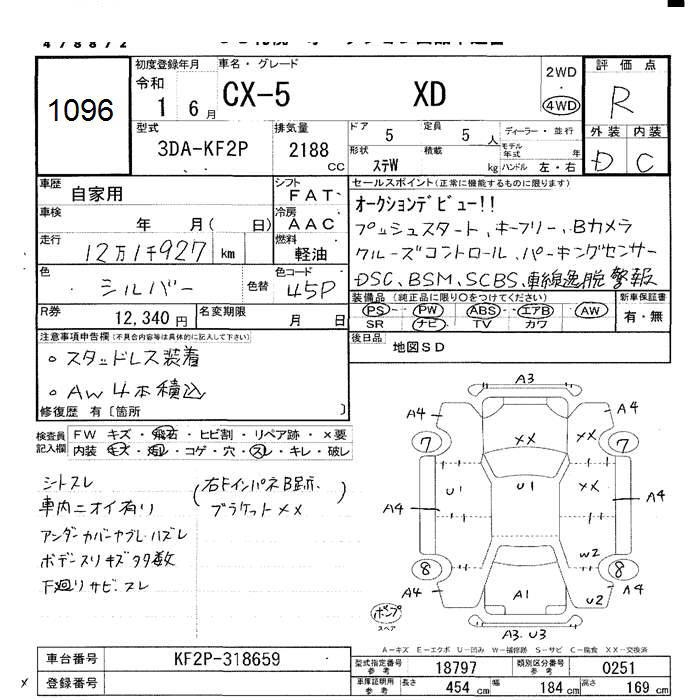 478872
1096
初度登録年月
令和
1 6月
車名・グレード
CX-5 XD
2WD
4WD
評価点
R
外装 内装
D C
型式
3DA-KF2P
排気量
2188
CC
ドア 5 定員 5 人
形状 ステW 積載 kg
ディーラー・並行
モデル年式 年
ハンドル 左・右
車歴 自家用
車検 年 月( 日)
走行 12万1千927 km
色 シルバー 色替
シフト FAT
冷房 AAC
燃料 軽油
色コード 45P
R券 12,340円
名変期限 月 日
セールスポイント(正常に機能するものに限ります)
オークションデビュー!!
プッシュスタート、キーフリー、Bカメラ
クルーズコントロール、パーキングセンサー
DSC、BSM、SCBS、車線逸脱警報
装備品(純正品に限り○をつけてください)
PS・PW・ABS・エアB・AW
SR ナビ TV カワ
新車保証書
有・無
後日品 地図SD
注意事項申告欄(不具合内容等は具体的に記入して下さい)
○スタッドレス装着
○AW4本積込
修復歴 有〔箇所 〕
検査員記入欄
FW キズ・飛石・ヒビ割・リペア跡・×要
内装 キズ・汚レ・コゲ・穴・スレ・キレ・破レ
シートスレ
車内ニオイ有り
アンダーカバーヤブレ・ハズレ
ボデースリキズ多数
下廻りサビ・スレ
(右Fインパネ B跡、
ブラケット××)
A3
A4 A4
7 ×× ×× 7
A4 U1 U1 ×× A4
W2
8 8
A4 A1 U2 A4
ポンプ
スペア
A3.U3
A-キズ E-エクボ U-凹み W-補修跡 S-サビ C-腐食 XX-交換済
車台番号 KF2P-318659
登録番号
型式指定番号 参考 18797
類別区分番号 参考 0251
車庫証明用 参考 長さ 454 cm 幅 184 cm 高さ 169 cm